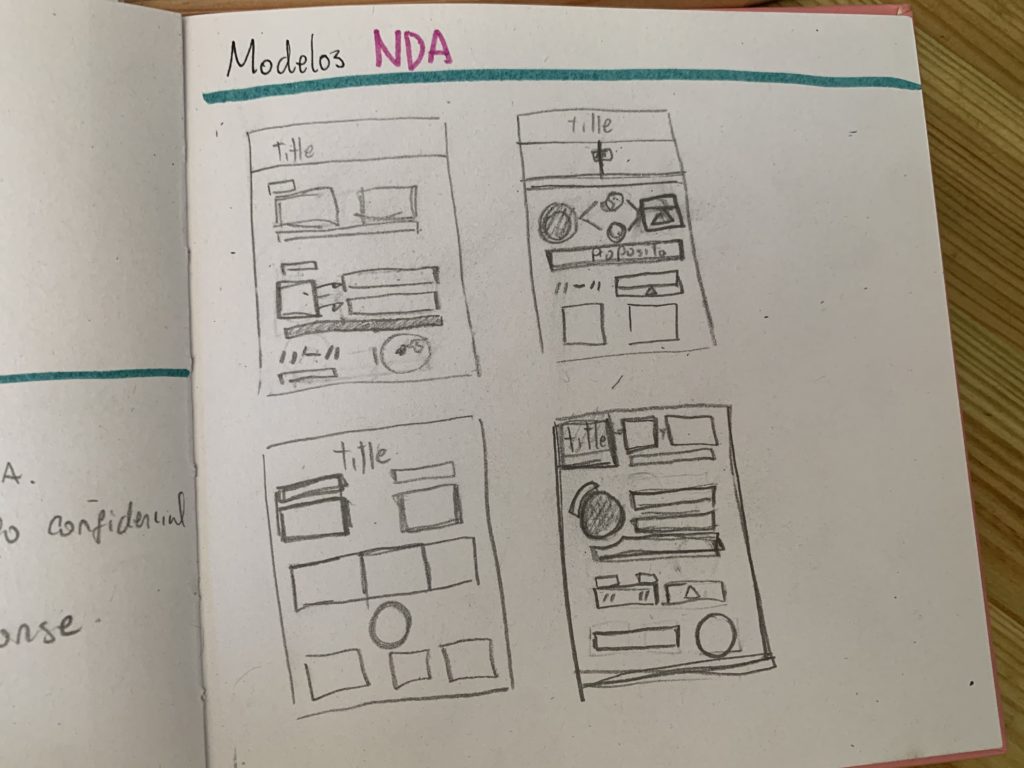 Modelos NDA
title
title
Proposito
title
title
A.
confidencial